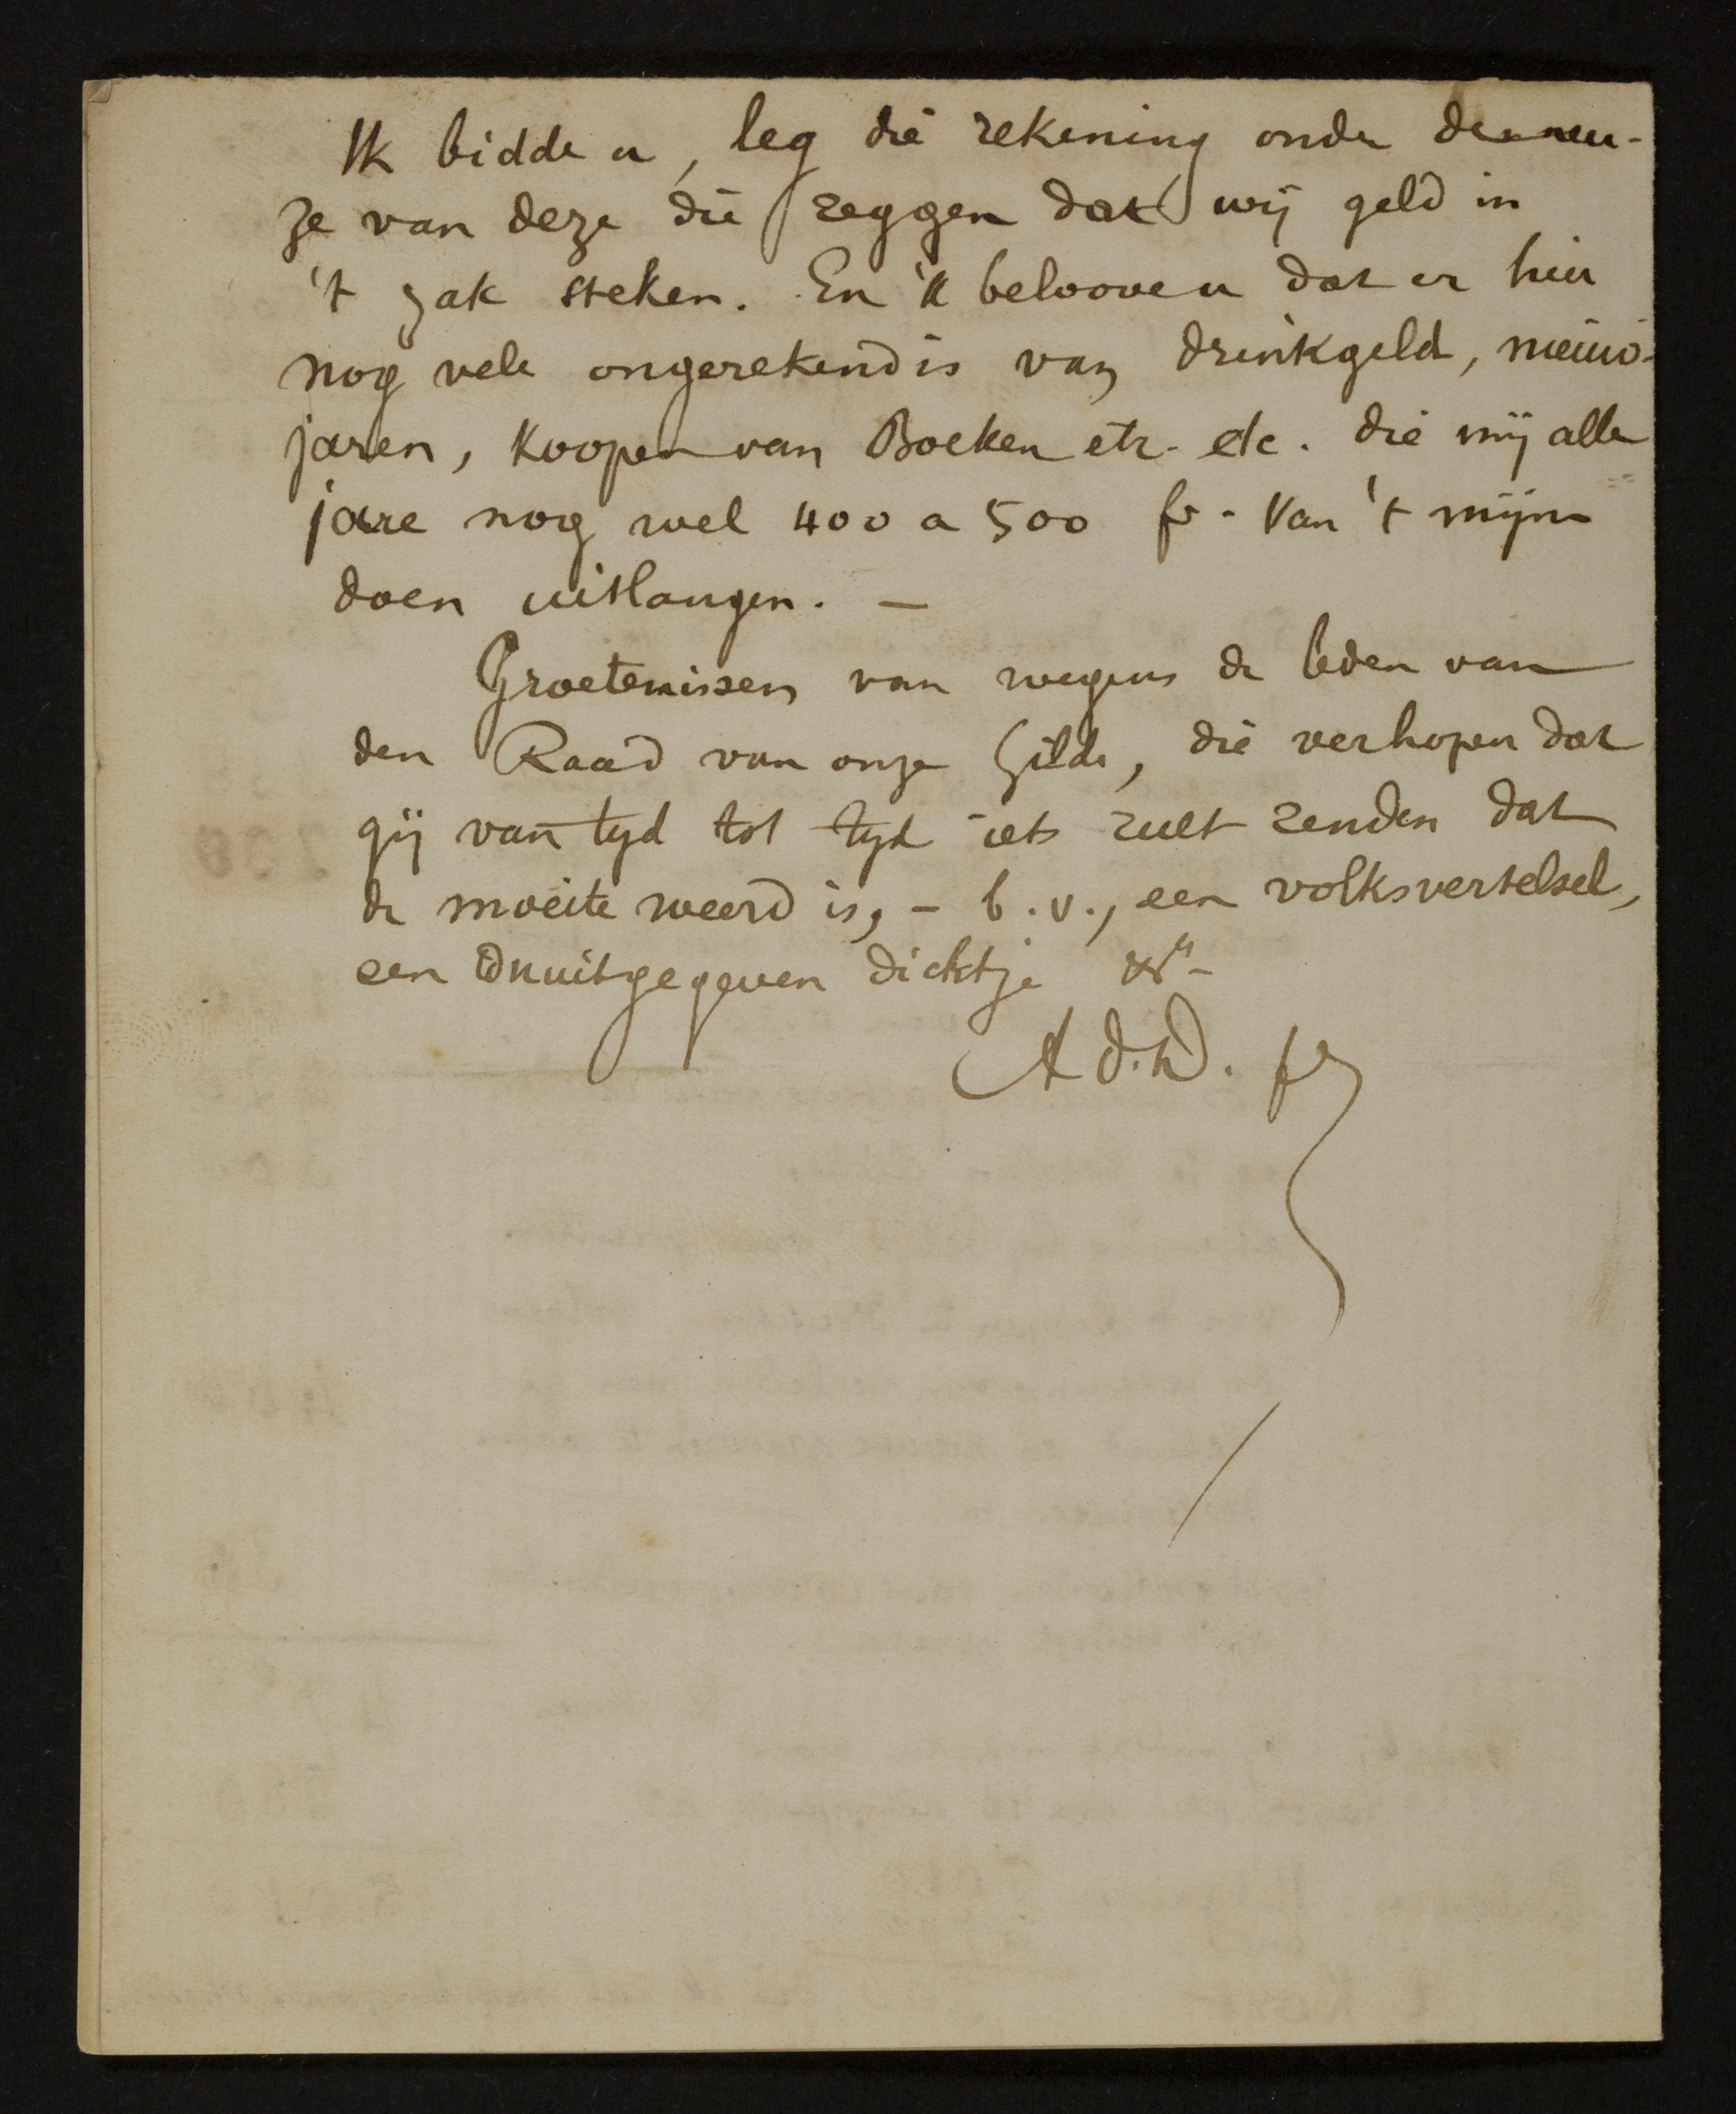 Ik bidde u, leg die rekening onder de neu-
ze van deze die zeggen dat wij geld in
't zak steken. En 'k beloove u dat er hier
nog vele ongerekend is van drinkgeld, nieuw-
jaren, koopen van Boeken etc. etc. die mij alle
jare nog wel 400 a 500 fr. van 't mijne
doen uitlangen. —
Groetenissen van wegens de leden van
den Raad van onze Gilde, die verhopen dat
gij van tyd tot tyd iets zult zenden dat
de moeite weerd is, - b.v., een volksvertelsel,
een Onuitgegeven dichtje
A d. W. fr